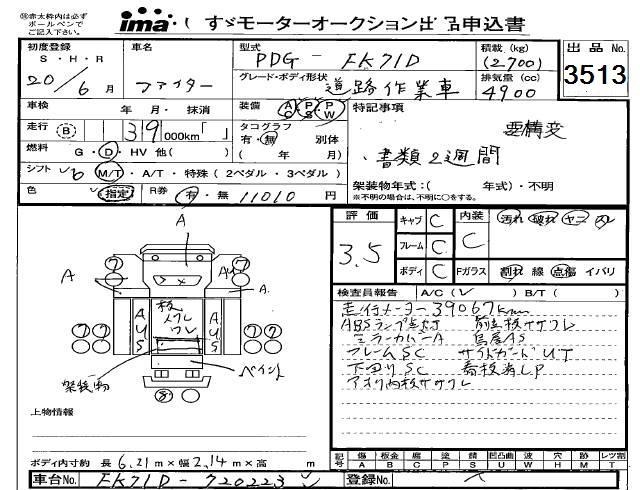 ※赤太枠内は必ず
ボールペンで
ご記入下さい。
ima いすゞモーターオークション出品申込書
出品No.
3513
初度登録
S・H・R
20/6月
車名
ファイター
型式
PDG-FK71D
積載(kg)
(2700)
グレード・ボディ形状
道路作業車
排気量(cc)
4900
車検 年・月・抹消
装備 AC・PS・PW
特記事項
要構変
書類2週間
走行(B) 39 000km「 」
タコグラフ
有・無 別体
( 年 月)
燃料 G・D・HV 他( )
シフト 6 M/T・A/T・特殊(2ペダル・3ペダル)
架装物年式:( 年式)・不明
※不明の場合は、年明に○をする。
色 指定
R券 有・無 11010円
評価
3.5
キャブ C
フレーム C
ボディ C
内装
C
汚れ 破れ ヤニ
Fガラス 割れ 線 点傷 イバリ
検査員報告 A/C(レ) B/T( )
走行メーター39067km
ABSランプ点灯 前立板ササクレ
ミラーカバーA 鳥居AS
フレームSC サイドガードUT
下回りSC 看板消LP
アオリ内板ササクレ
A
A
A
AU
A
AUS
AUS
板
ワレ
架装物
ペイント
上物情報
ボディ内寸約 長6.21m×幅2.14m×高 m
記号 傷A 板金B 腐C 塗P 錆S 凹凸曲U 波W 穴H 跡M レツ割T
車台No. FK71D-720223
登録No.